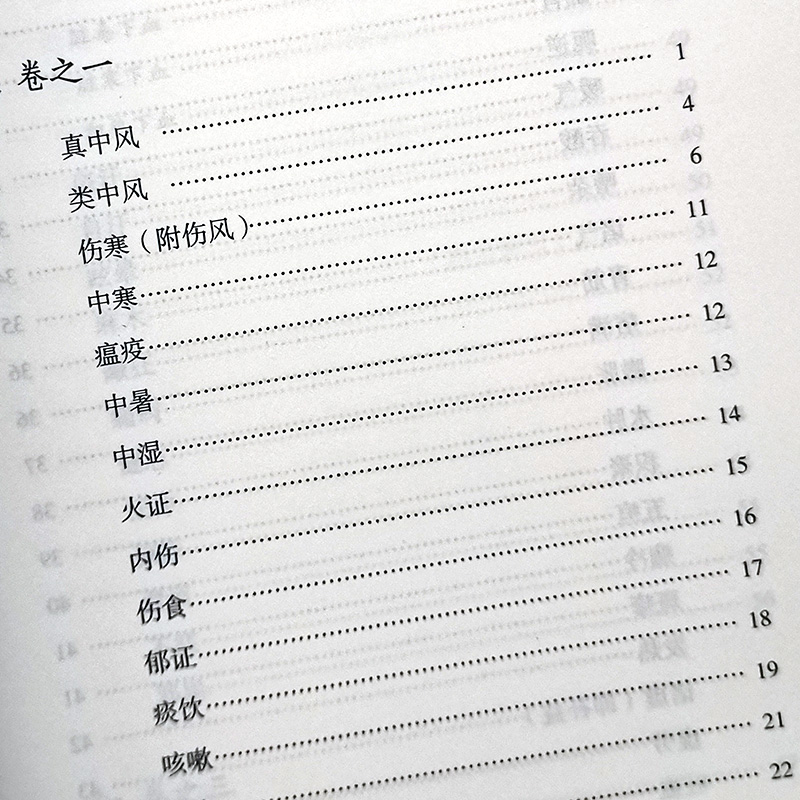 卷之一
真中风……1
类中风……4
伤寒（附伤风）……6
中寒……11
瘟疫……12
中暑……12
中湿……13
火证……14
内伤……15
伤食……16
郁证……17
痰饮……18
咳嗽……19
……21
……22